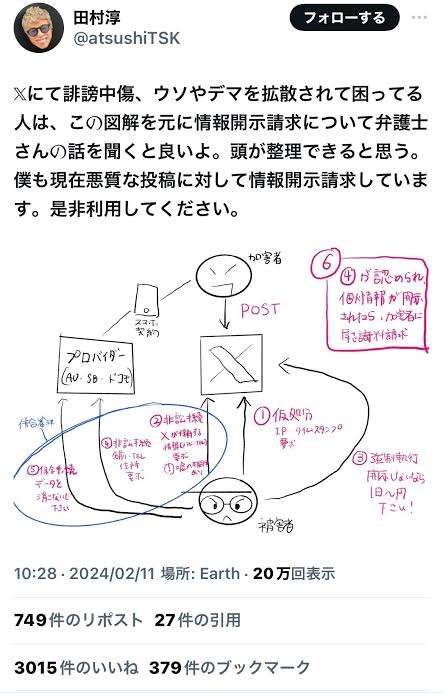 田村淳
@atsushiTSK
フォローする
𝕏にて誹謗中傷、ウソやデマを拡散されて困ってる
人は、この図解を元に情報開示請求について弁護士
さんの話を聞くと良いよ。頭が整理できると思う。
僕も現在悪質な投稿に対して情報開示請求していま
す。是非利用してください。
加害者
スマホ
契約
POST
プロバイダー
(AU・SB・ドコモ)
X
⑥
④が認められ、
個人情報が開示
されたら、加害者に
①仮処分
IP タイムスタンプ
②非訟手続
Xが保有する
④非訟手続
住所
⑤
データを
消さないで
下さい
③強制執行
開示しないなら
1日〜円
下さい!
被害者
10:28 · 2024/02/11 場所: Earth · 20万回表示
749件のリポスト 27件の引用
3015件のいいね 379件のブックマーク